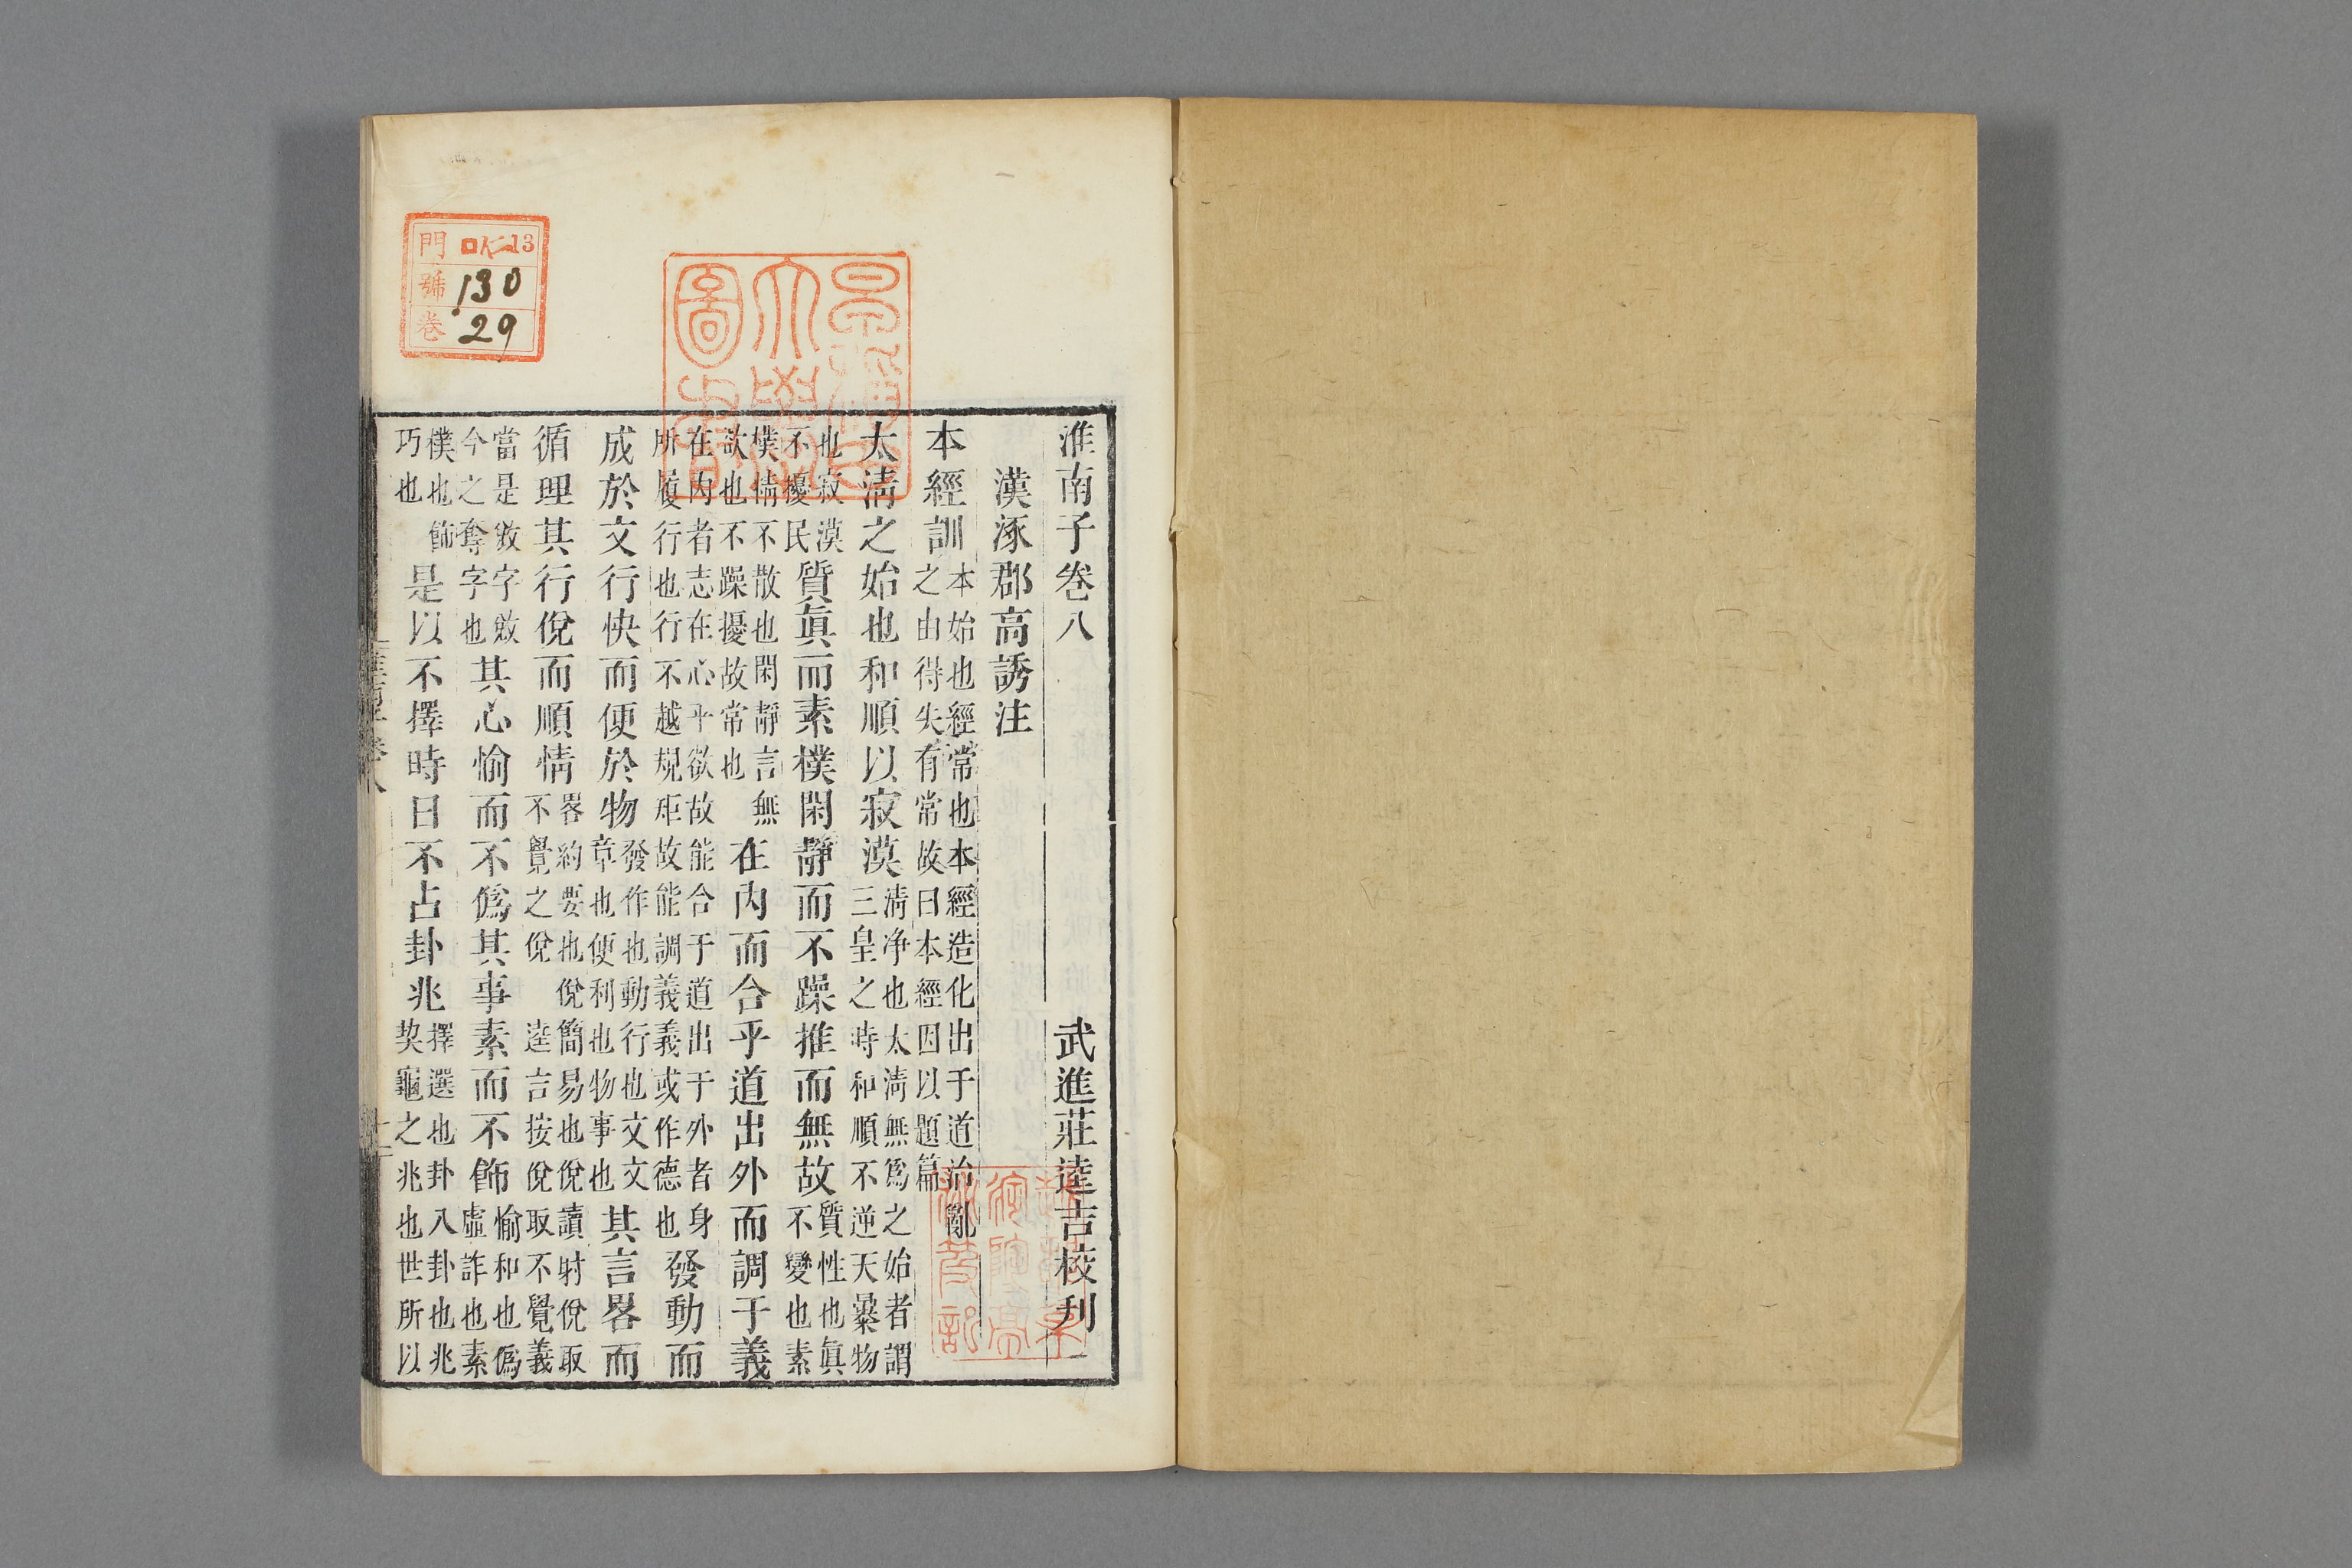 淮南子卷八　武進莊逵吉校刋
漢涿郡高誘注
本經訓本始也經常也本經造化出于道治亂之由得失有常故曰本經因以題篇
太淸之始也和順以寂漠淸净也太淸無爲之始者謂三皇之時和順不逆天暴物
也寂漠不擾民質眞而素樸閑靜而不躁推而無故質性也眞不變也素
樸情不散也閑靜言無欲也不躁擾故常也在内而合乎道出外而調于義
在内者志在心平欲故能合于道出于外者身所履行也行不越規矩故能調義義或作德也發動而
成於文行快而便於物發作也動行也文文章也便利也物事也其言畧而
循理其行侻而順情畧約要也侻簡易也侻讀射侻取不覺之侻　逵言按侻取不覺義
當是敓字敓今之奪字也其心愉而不僞其事素而不飾愉和也僞虛詐也素
樸也飾巧也是以不擇時日不占卦兆擇選也卦八卦也兆契龜之兆也世所以
早稻田大學圖書
門 ロ仁13
號 130
卷 29